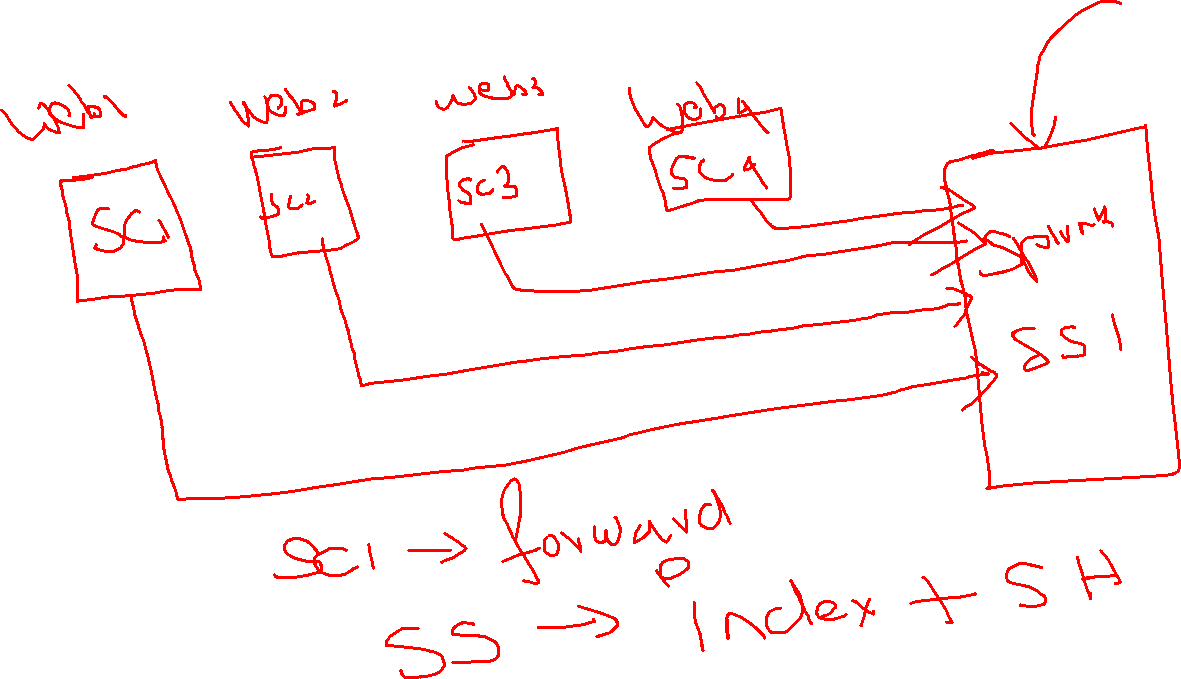 web1 web2 web3 web4
SC1 SC2 SC3 SC4
Splunk
SS1
SC1 → forward
SS → Index + SH